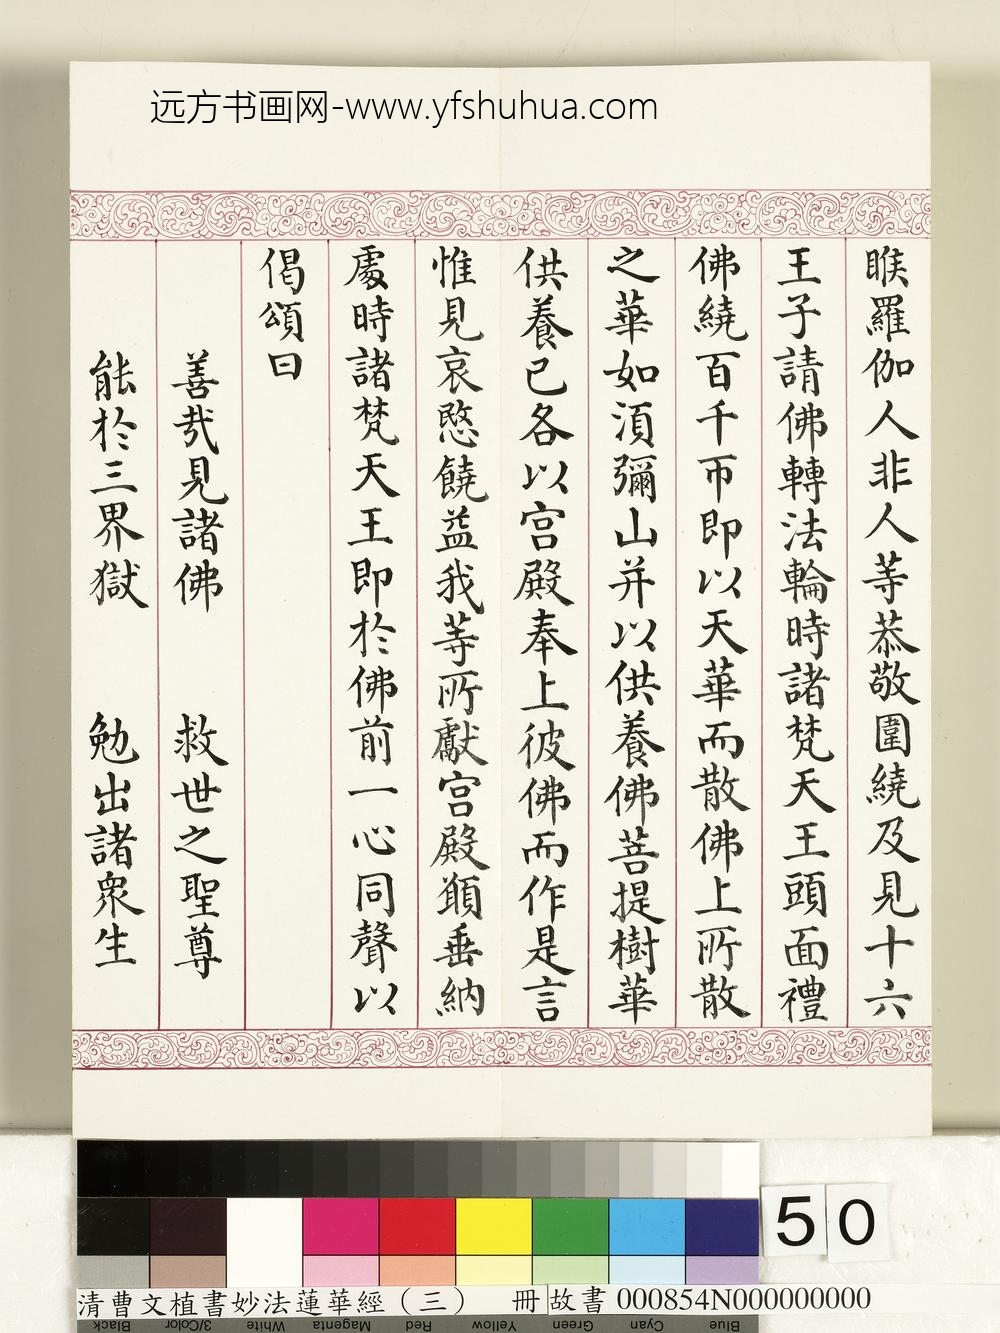 远方书画网-www.yfshuhua.com
睺羅伽人非人等恭敬圍繞及見十六
王子請佛轉法輪時諸梵天王頭面禮
佛繞百千帀即以天華而散佛上所散
之華如湏彌山并以供養佛菩提樹華
供養已各以宫殿奉上彼佛而作是言
惟見哀愍饒益我等所獻宫殿願垂納
處時諸梵天王即於佛前一心同聲以
偈頌曰
善哉見諸佛 救世之聖尊
能於三界獄 勉出諸衆生
50
清曹文植書妙法蓮華經(三) 冊 故書 000854N000000000
Black 3/Color White Magenta Red Yellow Green Cyan Blue